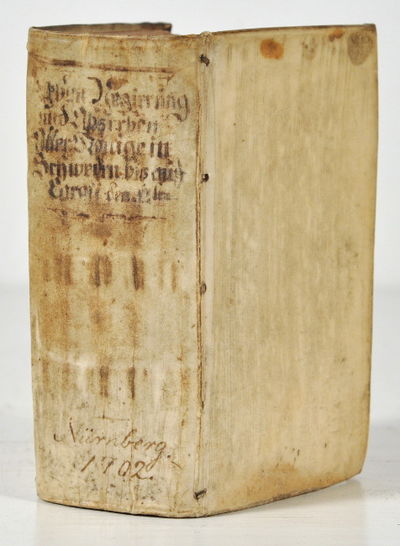 Leben Regierung
und Absterben
Aller Könige in
Schweden bis auf
Carol den
Nürnberg.
1702.